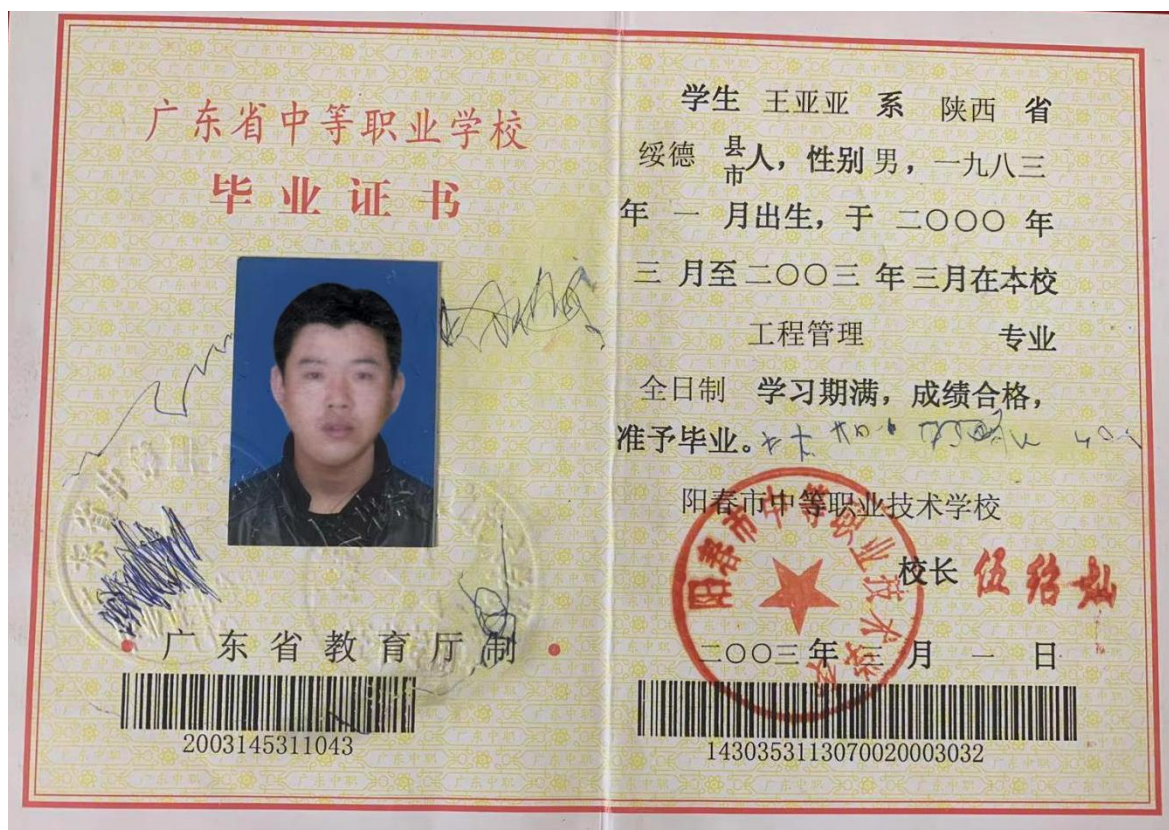 广东省中等职业学校
毕业证书
广东省教育厅制
2003145311043
学生 王亚亚 系 陕西 省
绥德 县市人，性别 男，一九八三
年 一 月出生，于 二〇〇〇 年
三 月至 二〇〇三 年 三月在本校
工程管理 专业
全日制 学习期满，成绩合格，
准予毕业。
阳春市中等职业技术学校
阳春市中等职业技术学校
校长 伍绍灿
二〇〇三年 三 月 一 日
1430353113070020003032